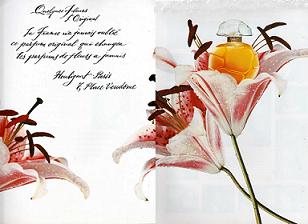 Quelques Fleurs
L'Original
La France n'a jamais oublié
ce parfum original qui changea
les parfums de fleurs à jamais
Houbigant Paris
Place Vendôme